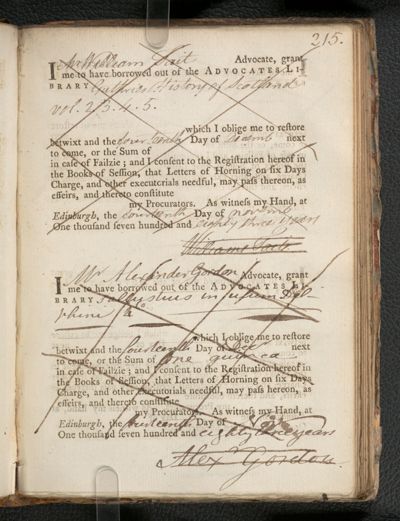 215.
I Mr William Tait Advocate, grant
me to have borrowed out of the ADVOCATES LI-
BRARY Guthries History of Scotland
vol. 2. 3. 4. 5.
which I oblige me to restore
betwixt and the fourteenth Day of next
to come, or the Sum of
in case of Failzie; and I consent to the Registration hereof in
the Books of Session, that Letters of Horning on six Days
Charge, and other executorials needful, may pass thereon, as
effeirs, and thereto constitute
my Procurators. As witness my Hand, at
Edinburgh, the fourteenth Day of
One thousand seven hundred and eighty three years
William Tait
I Mr Alexander Gordon Advocate, grant
me to have borrowed out of the ADVOCATES LI-
BRARY Sallustius in usum Del-
phini 4to
which I oblige me to restore
betwixt and the fourteenth Day of next
to come, or the Sum of one guinea
in case of Failzie; and I consent to the Registration hereof in
the Books of Session, that Letters of Horning on six Days
Charge, and other executorials needful, may pass thereon, as
effeirs, and thereto constitute
my Procurators. As witness my Hand, at
Edinburgh, the fourteenth Day of
One thousand seven hundred and eighty three years
Alexr Gordon.